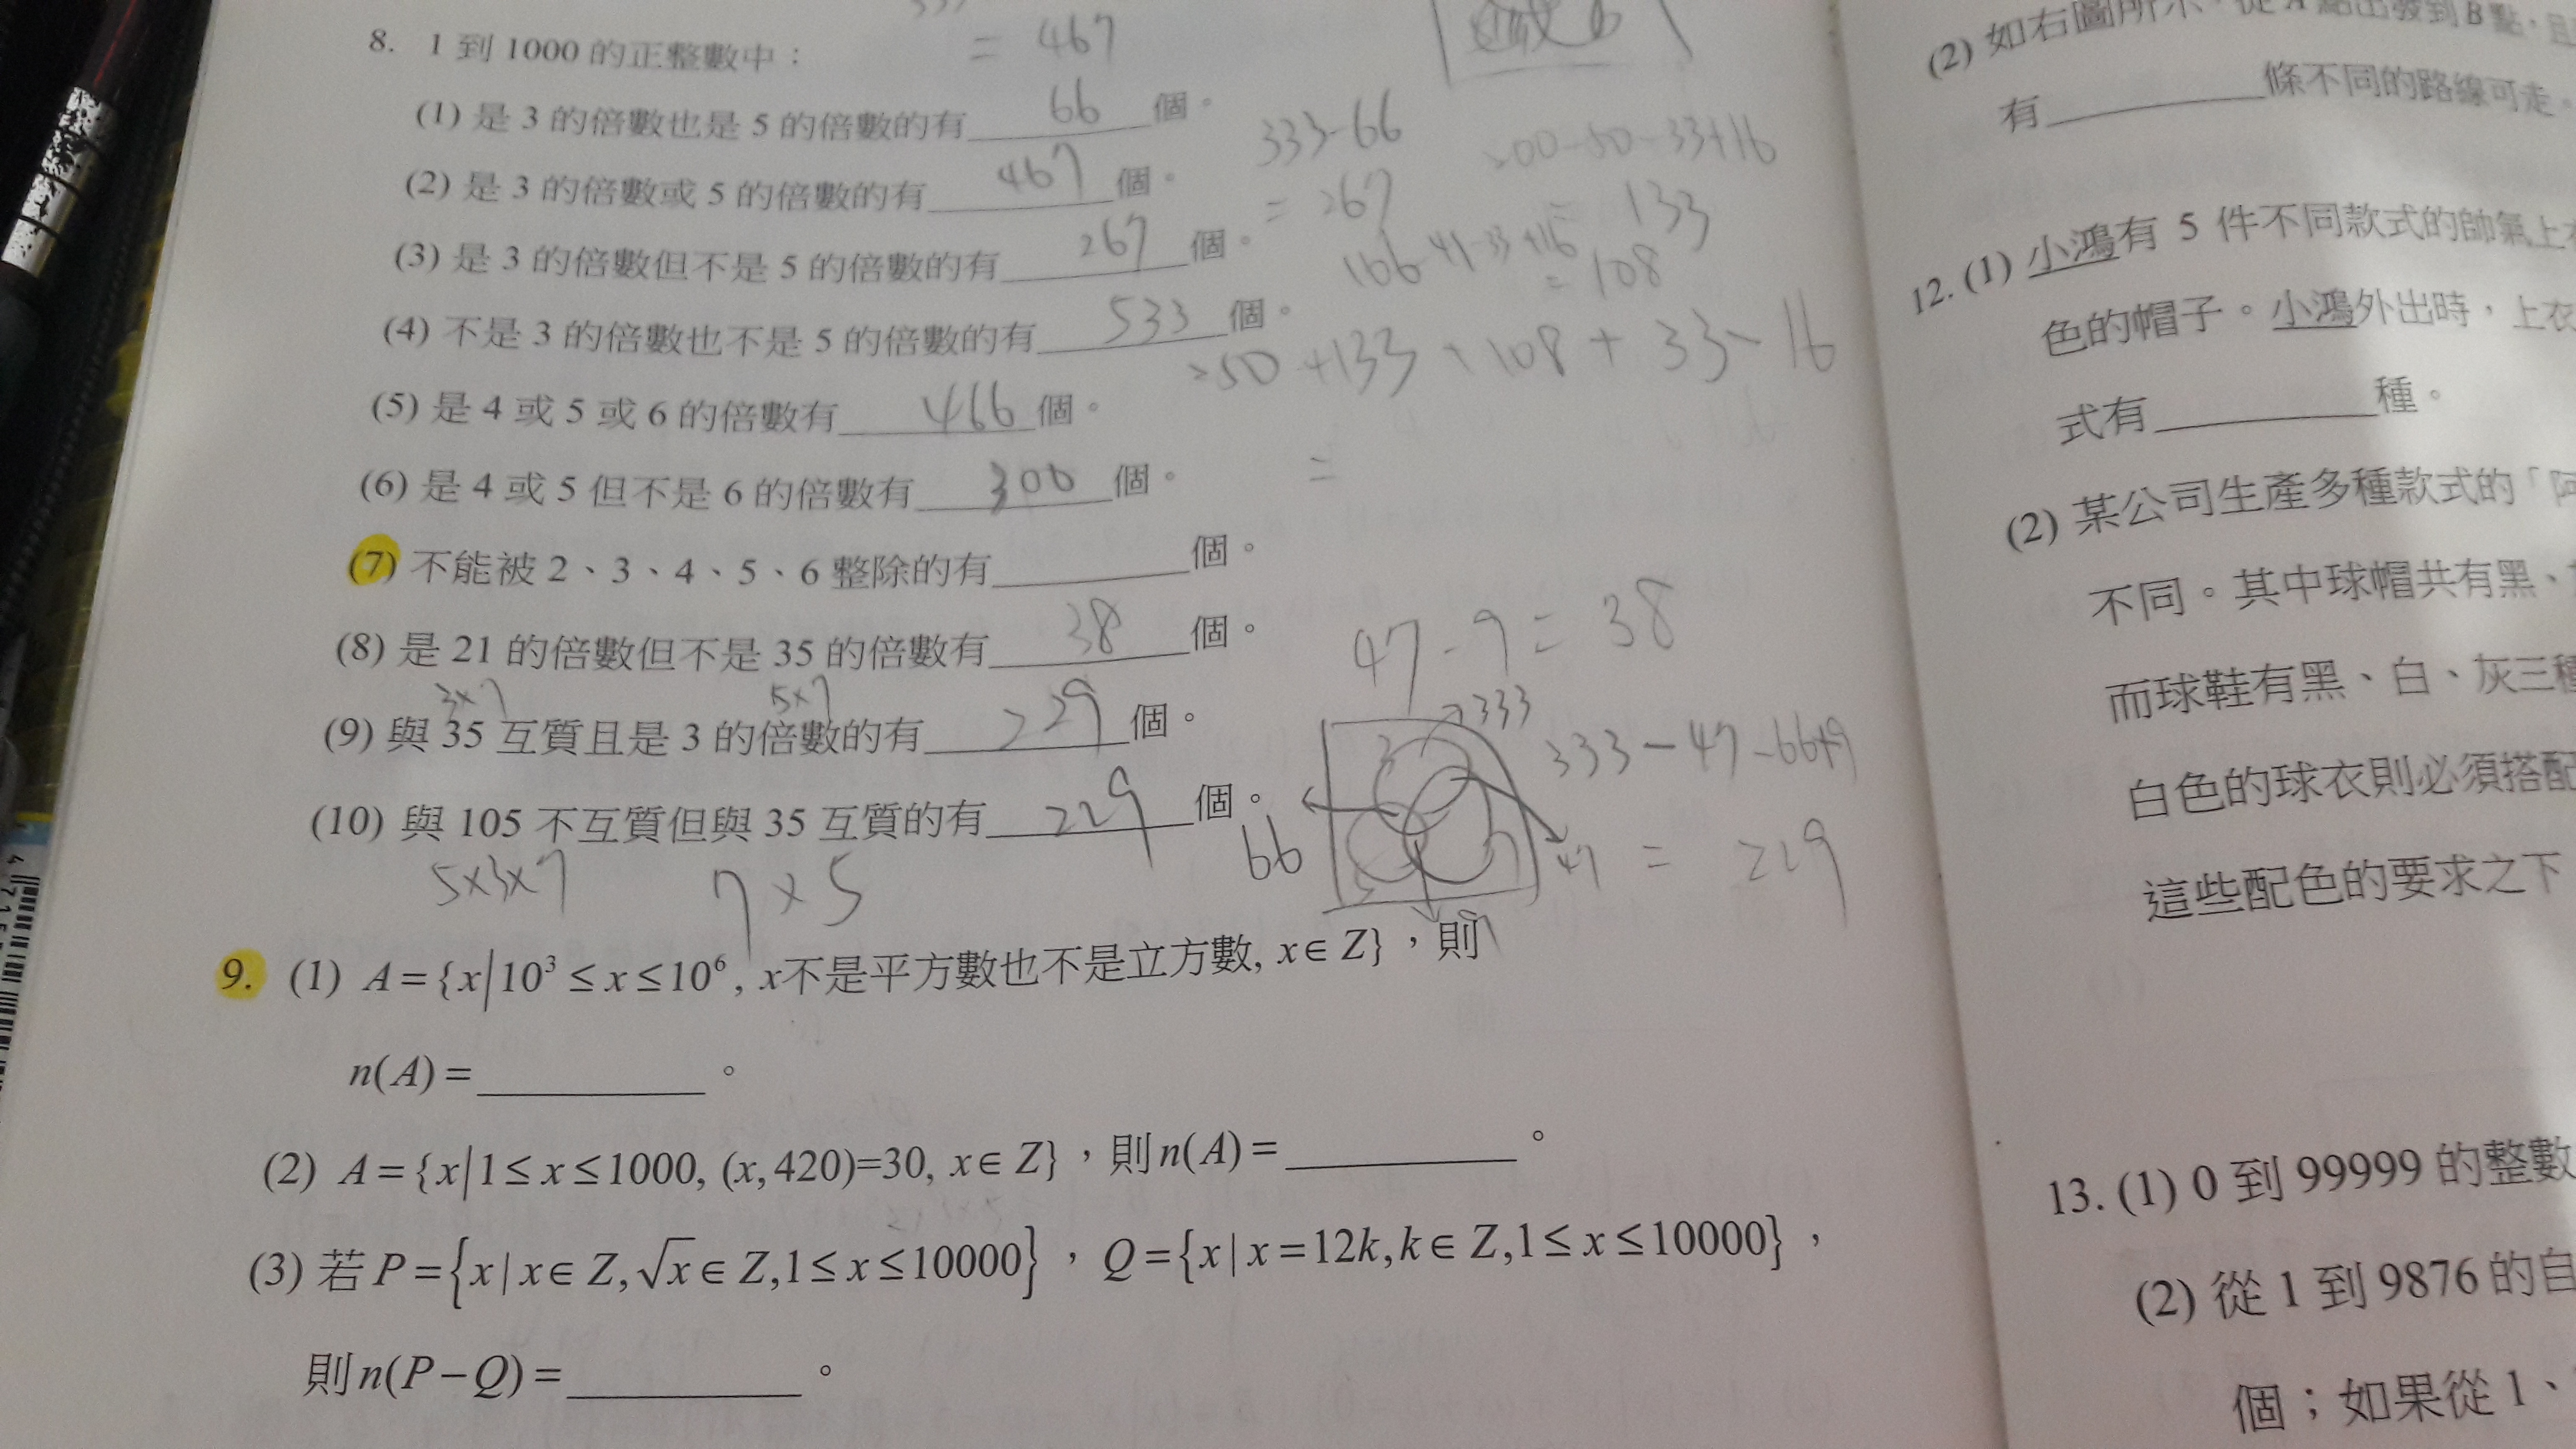 8. 1 到 1000 的正整數中：
= 467
(1) 是 3 的倍數也是 5 的倍數的有 66 個。
(2) 是 3 的倍數或 5 的倍數的有 467 個。
(3) 是 3 的倍數但不是 5 的倍數的有 267 個。
(4) 不是 3 的倍數也不是 5 的倍數的有 533 個。
(5) 是 4 或 5 或 6 的倍數有 466 個。
(6) 是 4 或 5 但不是 6 的倍數有 300 個。
(7) 不能被 2、3、4、5、6 整除的有 個。
(8) 是 21 的倍數但不是 35 的倍數有 38 個。
3×7 5×7
(9) 與 35 互質且是 3 的倍數的有 229 個。
(10) 與 105 不互質但與 35 互質的有 229 個。
5×3×7 7×5
333-66
= 267
200-50-33+16
= 133
166-41-33+16
= 108
250+133+108+33-16
=
47-9=38
333
3
66
47
5
7
333-47-66+9
= 229
9. (1) A={x|10³≤x≤10⁶, x不是平方數也不是立方數, x∈Z}，則
n(A)= 。
(2) A={x|1≤x≤1000, (x,420)=30, x∈Z}，則n(A)= 。
(3) 若P={x|x∈Z,√x∈Z,1≤x≤10000}，Q={x|x=12k,k∈Z,1≤x≤10000}，
則n(P−Q)= 。
(2) 如右圖所示，從A點出發到B點，且
有 條不同的路線可走。
12. (1) 小鴻有 5 件不同款式的帥氣上衣
色的帽子。小鴻外出時，上衣
式有 種。
(2) 某公司生產多種款式的「阿
不同。其中球帽共有黑、
而球鞋有黑、白、灰三種
白色的球衣則必須搭配
這些配色的要求之下
13. (1) 0 到 99999 的整數
(2) 從 1 到 9876 的自
個；如果從 1、